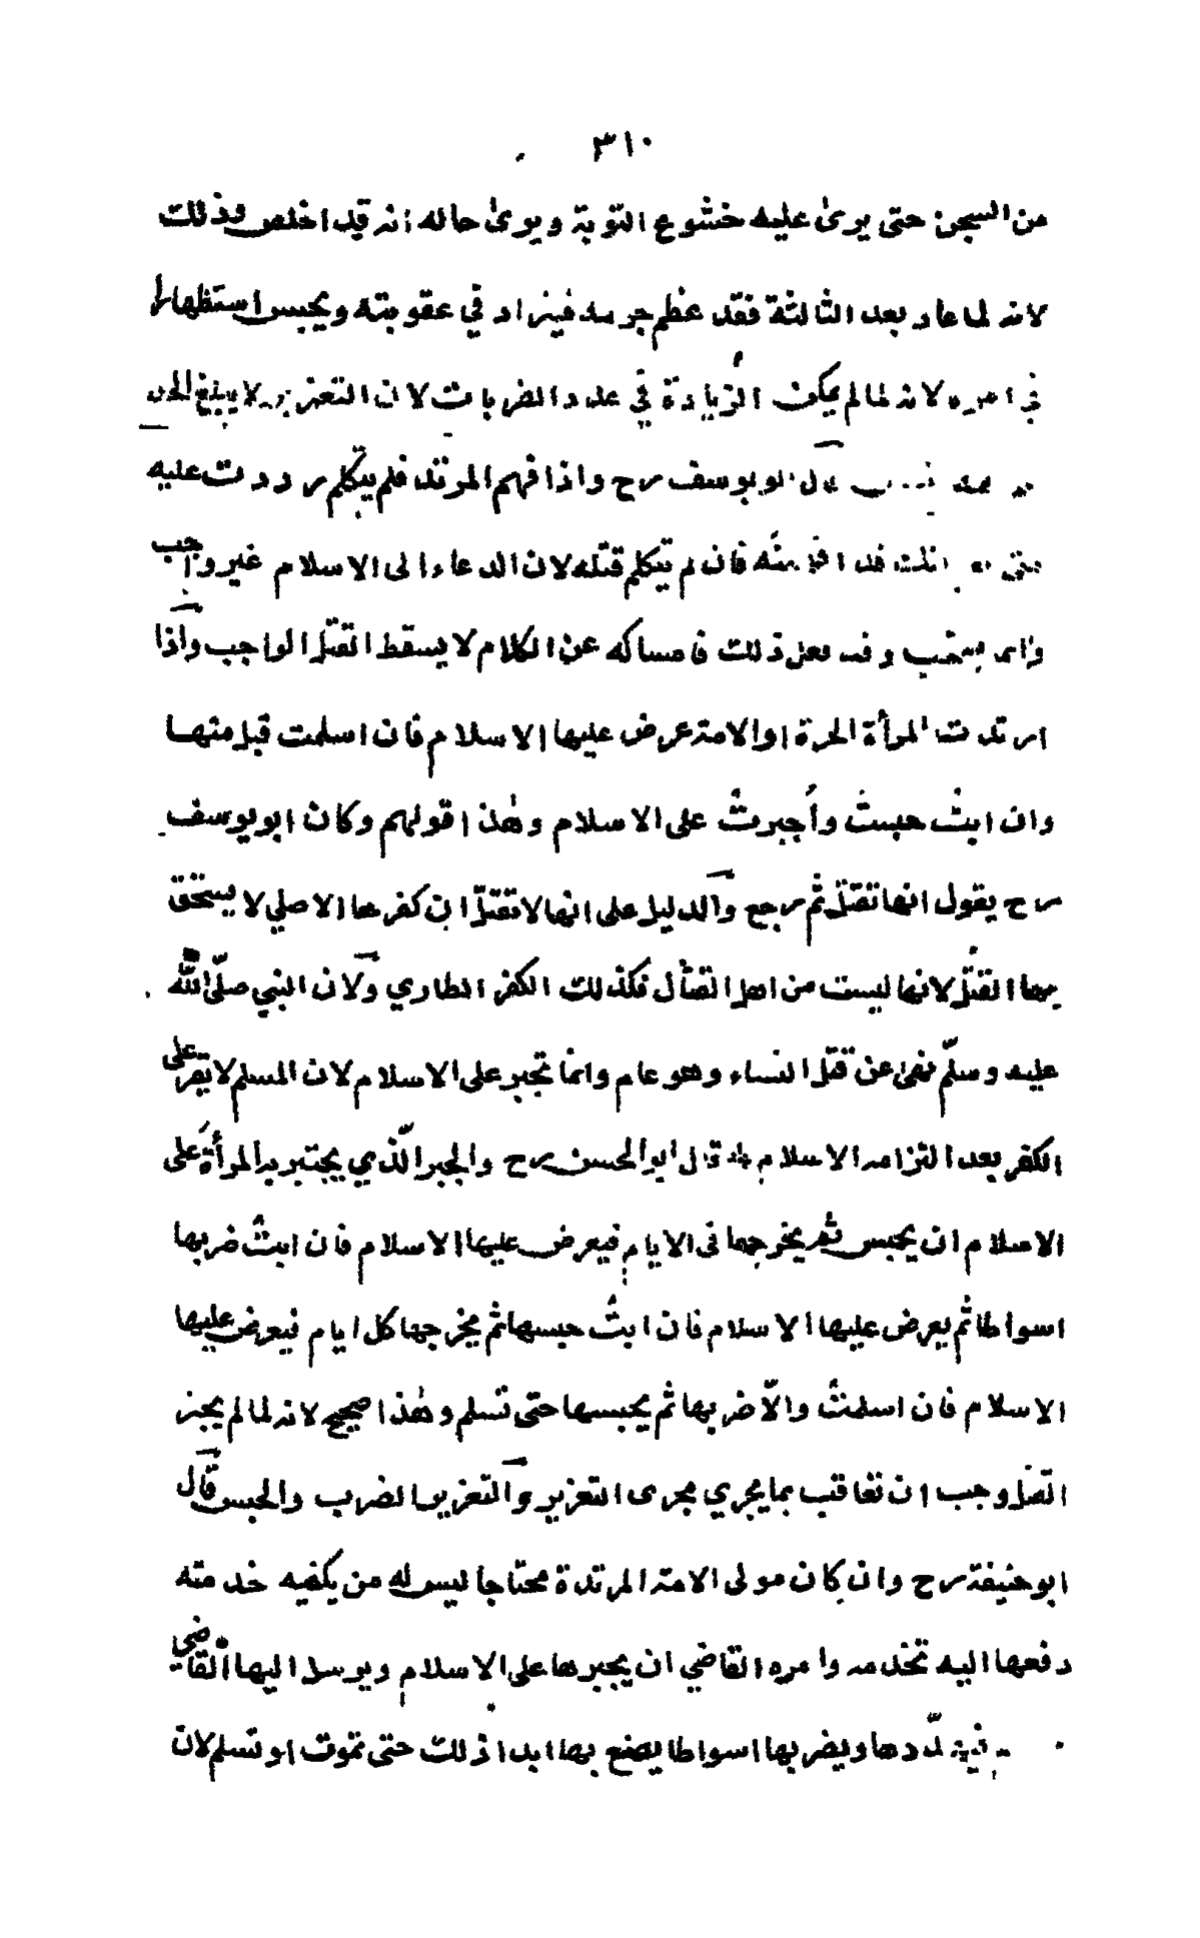 ٣١٠
من السجن حتى يرىٰ عليه خشوع التوبة ويرىٰ حاله انه قد اخلص وذلك
لانه لما عاد بعد الثالثة فقد عظم جرمه فيزاد في عقوبته ويحبس استظهارا
في امره لانه لما لم يمكن الزيادة في عدد الضربات لان التعزير لا يبلغ الحد
قال ابو يوسف رح واذا فهم المرتد فلم يتكلم رددت عليه
فان لم يتكلم قتله لان الدعاء الى الاسلام غير واجب
وانما يستحب وقد فعل ذلك فامساكه عن الكلام لا يسقط القتل الواجب واذا
ارتدت المرأة الحرة او الامة عرض عليها الاسلام فان اسلمت قبل منها
وان ابتْ حبستْ وأجبرتْ على الاسلام وهٰذا قولهم وكان ابو يوسف
رح يقول انها تقتل ثم رجع والدليل على انها لا تقتل ان كفرها الاصلي لا يستحق
بها القتل لانها ليست من اهل القتال فكذلك الكفر الطاري ولان النبي صلّى اللّٰه
عليه وسلّم نهىٰ عن قتل النساء وهو عام وانما تجبر على الاسلام لان المسلم لا يقر على
الكفر بعد التزامه الاسلام قال ابو الحسن رح والجبر الّذي يجتبر به المرأة على
الاسلام ان يحبس ثم يخرجها في الايام فيعرض عليها الاسلام فان ابتْ ضربها
اسواطا ثم يعرض عليها الاسلام فان ابتْ حبسها ثم يخرجها كل ايام فيعرض عليها
الاسلام فان اسلمتْ والّا ضربها ثم يحبسها حتى تسلم وهٰذا صحيح لانه لما لم يجز
القتل وجب ان تعاقب بما يجري مجرى التعزير والتعزير الضرب والحبس قال
ابو حنيفة رح وان كان مولى الامة المرتدة محتاجا ليس له من يكفيه خدمته
دفعها اليه تخدمه وامره القاضي ان يجبرها على الاسلام ويرسل اليها القاضي
ويضربها اسواطا يصنع بها ابدا ذلك حتى تموت او تسلم لان